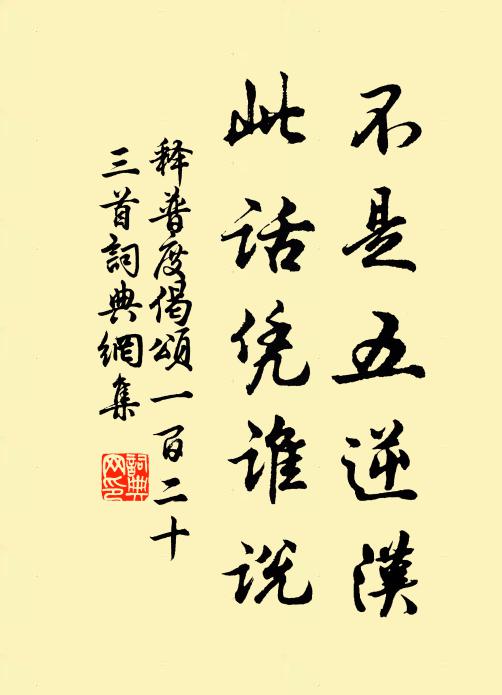 不是五逆汉
此话凭谁说
释普度偈頌一百二十
三首詞典網集
詞典
网印